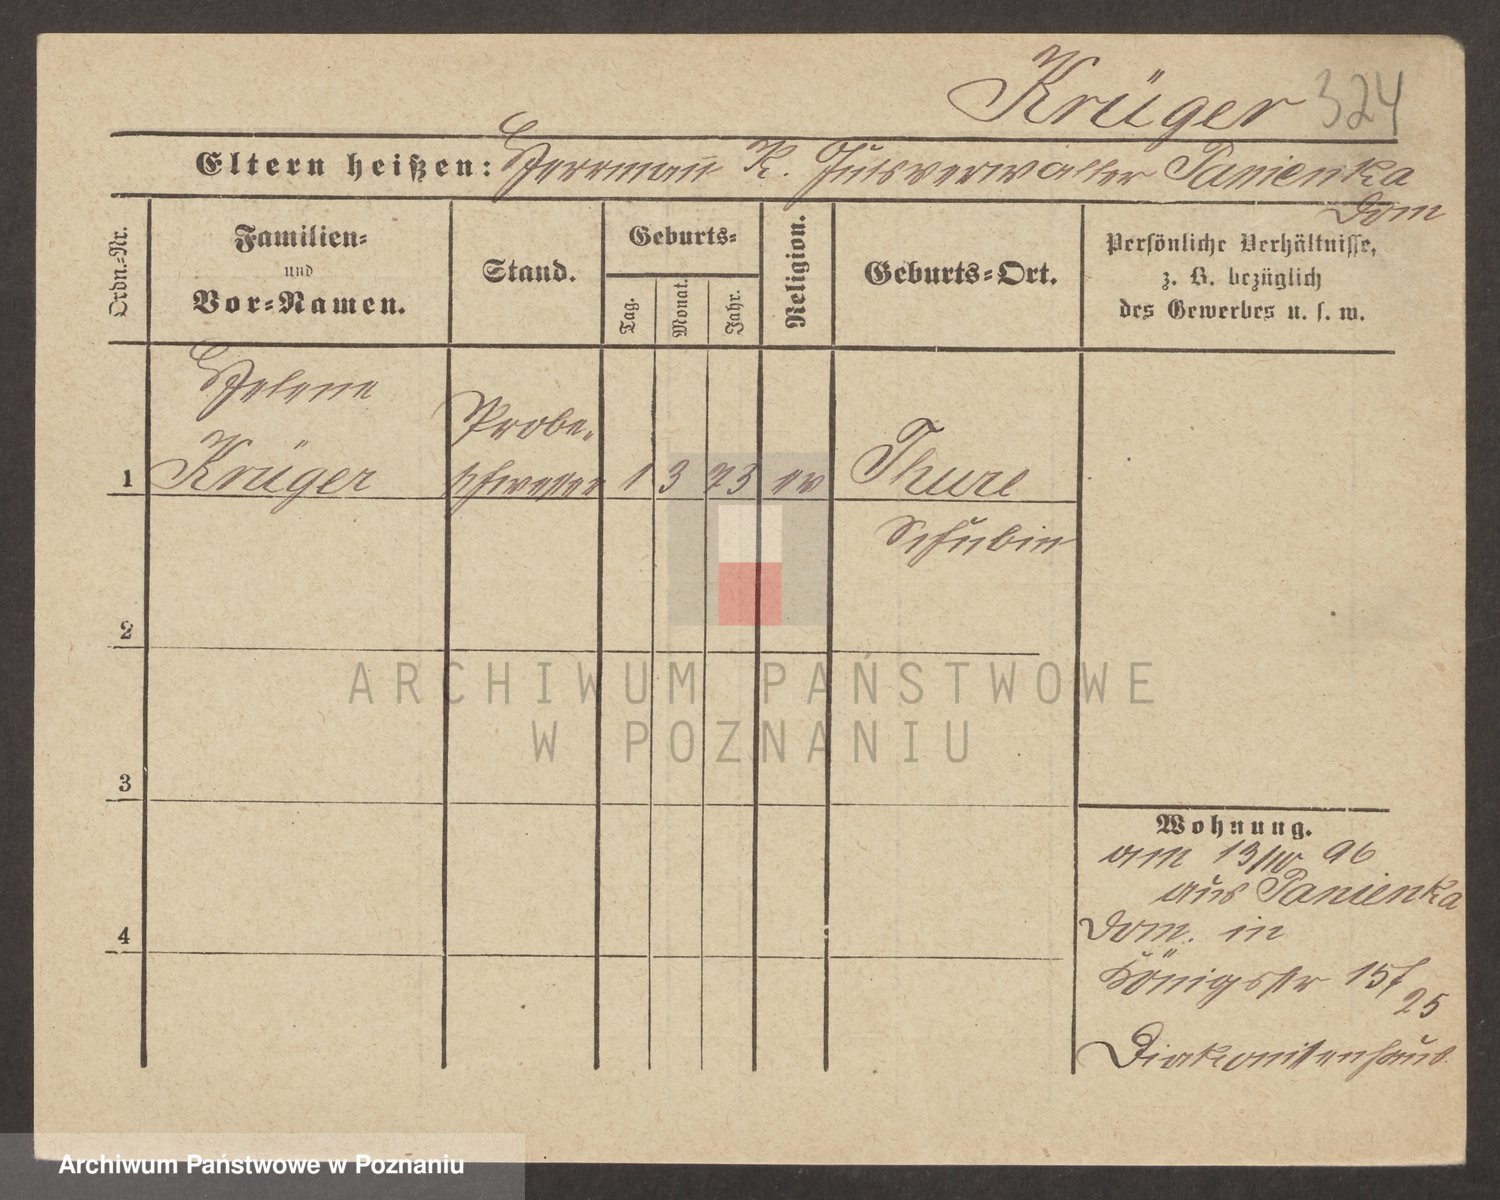 Krüger 324
Eltern heißen: Herrmann K. Gutsverwalter Panienka
Dom
Ordn.-Nr.
Familien-
und
Vor-Namen.
Stand.
Geburts-
Tag.
Monat.
Jahr.
Religion.
Geburts-Ort.
Persönliche Verhältnisse,
z. B. bezüglich
des Gewerbes u. s. w.
Helene
Krüger
Probe-
schwester
1 1 3 75 ev Thure
Schubin
2
3
4
Wohnung.
am 13/IV 96
aus Panienka
Dom. in
Königsstr 15/
25
Diakonissenhaus.
ARCHIWUM PAŃSTWOWE
W POZNANIU
Archiwum Państwowe w Poznaniu